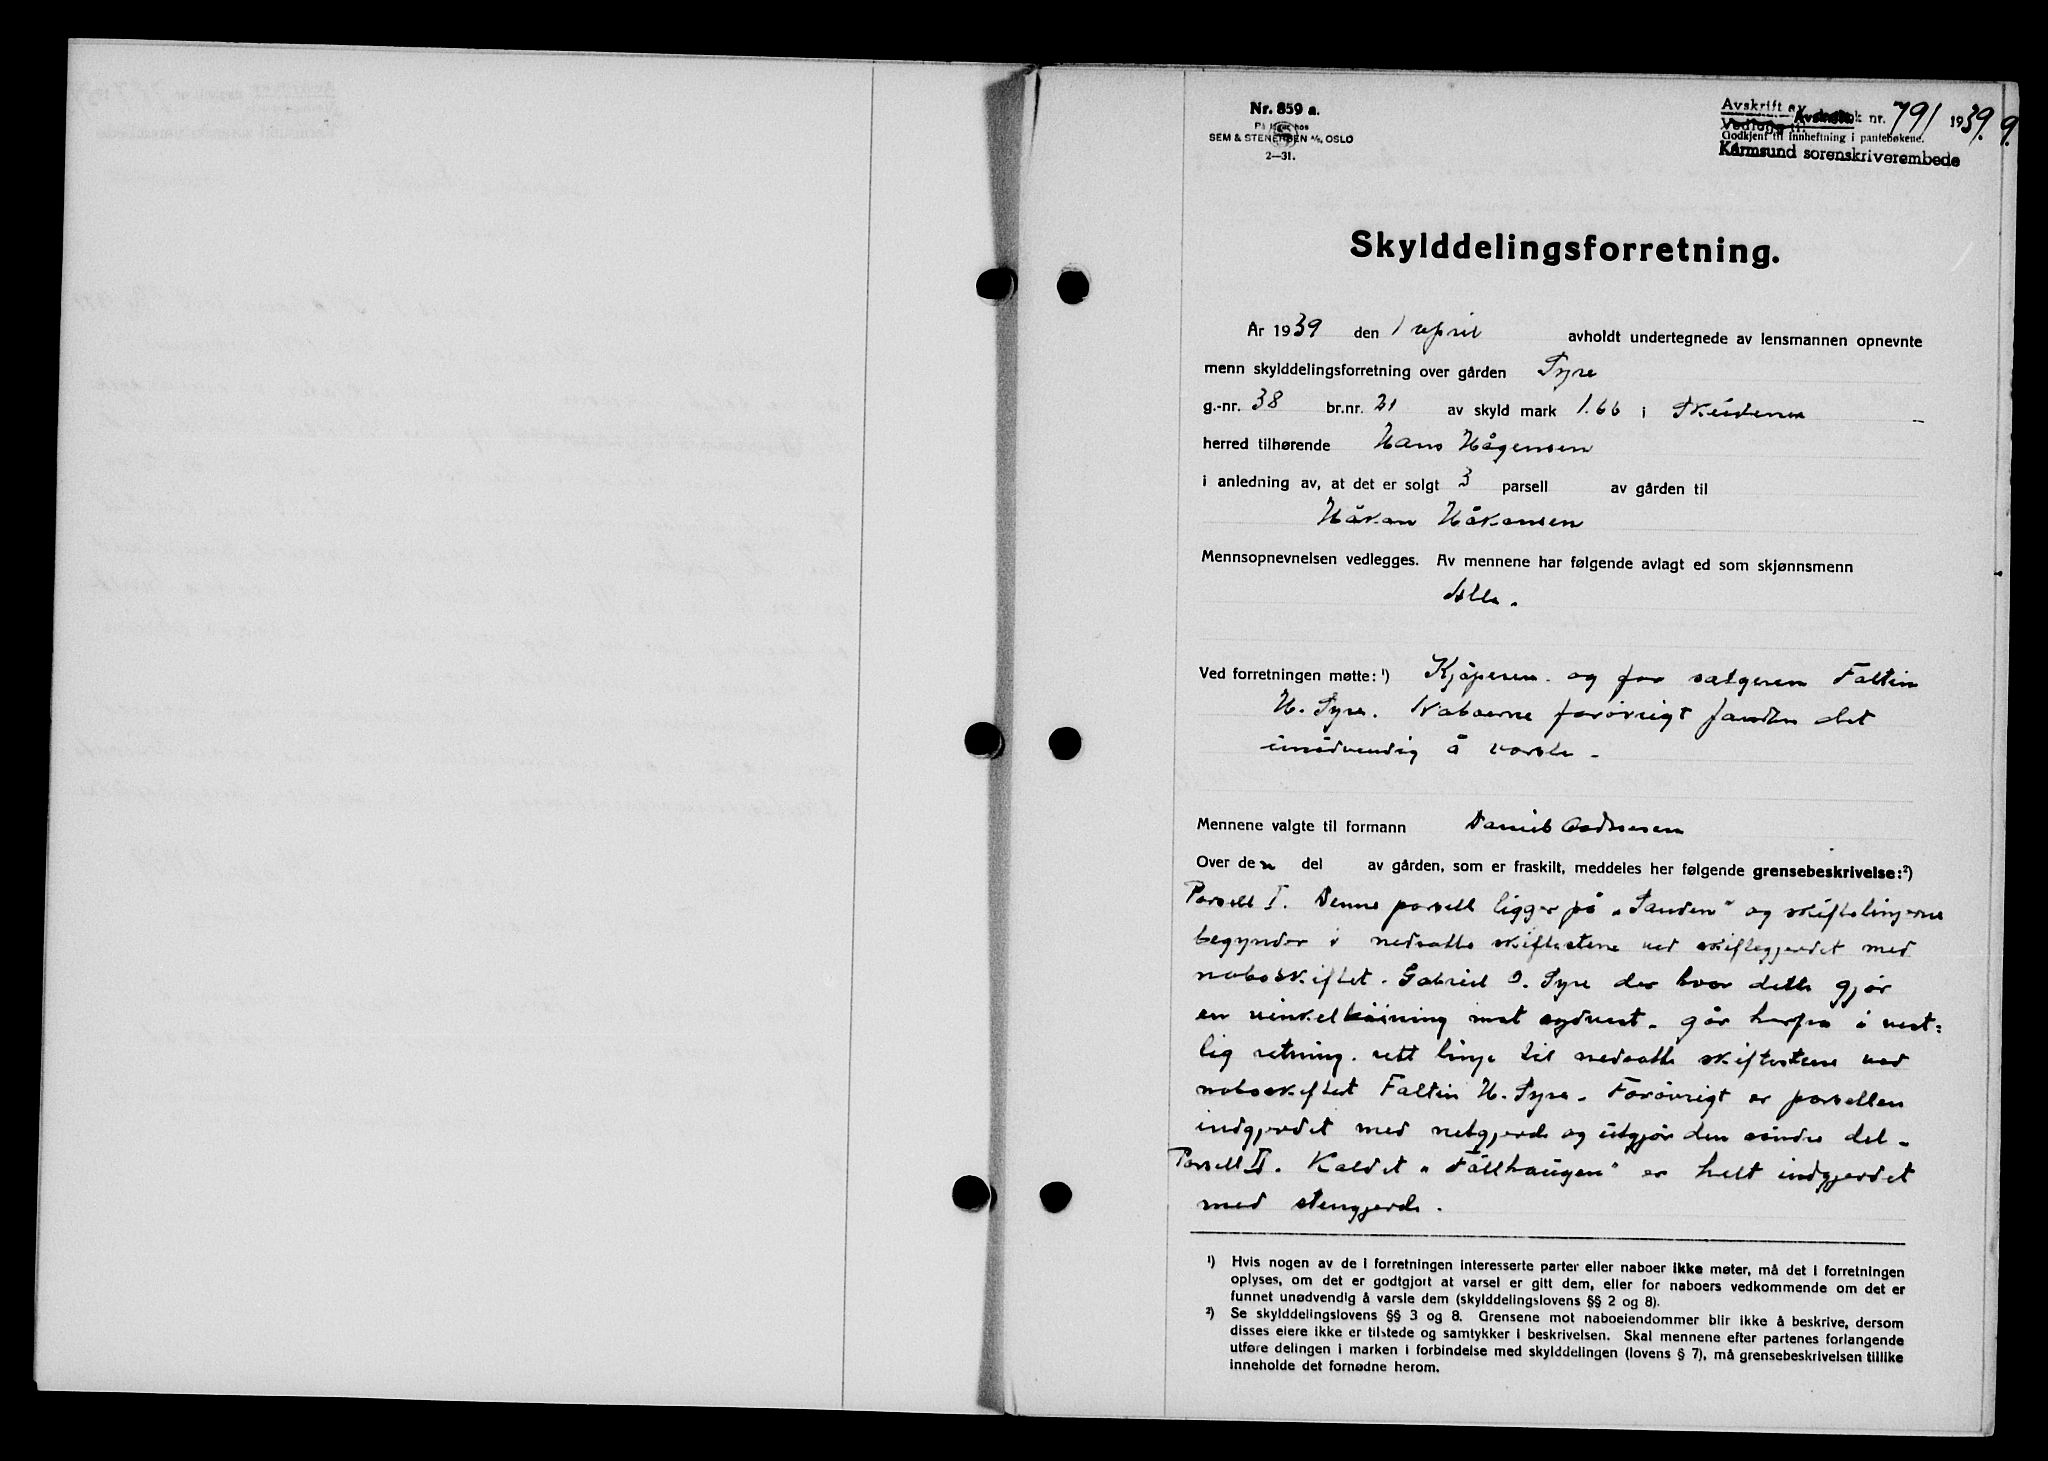 Nr. 859 a.
På lager hos
SEM & STENERSEN A/S, OSLO
2—31.
Avskrift av
Vedlegg til dagbok nr. 791 1939. 9.
Godkjent til innheftning i pantebøkene.
Karmsund sorenskriverembede
Skylddelingsforretning.
År 1939 den 1 april avholdt undertegnede av lensmannen opnevnte
menn skylddelingsforretning over gården Syre
g.-nr. 38 br.nr. 21 av skyld mark 1.66 i Skudenes
herred tilhørende Hans Hågensen
i anledning av, at det er solgt 3 parsell av gården til
Håkan Håkansen
Mennsopnevnelsen vedlegges. Av mennene har følgende avlagt ed som skjønnsmenn
Alle.
Ved forretningen møtte: ¹) Kjøperen og for sælgeren Faltin
H. Syre. Naboerne forøvrigt fandtes det
unødvendig å varsle.
Mennene valgte til formann Daniel
Over den del av gården, som er fraskilt, meddeles her følgende grensebeskrivelse:²)
Parsell I. Denne parsell ligger på "Sanden" og skiftelinjerne
begynder i nedsatte skiftestene ved skiftegjerdet med
naboskiftet. Gabriel O. Syre der hvor dette gjør
en vinkelbøining mot sydvest. går herfra i vest=
lig retning. rett linje til nedsatte skiftestene ved
naboskiftet Faltin H. Syre. Forøvrigt er parsellen
indgjerdet med netgjerde og utgjør den søndre del.
Parsell II. Kaldet "Fållhaugen" er helt indgjerdet
med stengjerde.
¹) Hvis nogen av de i forretningen interesserte parter eller naboer ikke møter, må det i forretningen
oplyses, om det er godtgjort at varsel er gitt dem, eller for naboers vedkommende om det er
funnet unødvendig å varsle dem (skylddelingslovens §§ 2 og 8).
²) Se skylddelingslovens §§ 3 og 8. Grensene mot naboeiendommer blir ikke å beskrive, dersom
disses eiere ikke er tilstede og samtykker i beskrivelsen. Skal mennene efter partenes forlangende
utføre delingen i marken i forbindelse med skylddelingen (lovens § 7), må grensebeskrivelsen tillike
inneholde det fornødne herom.